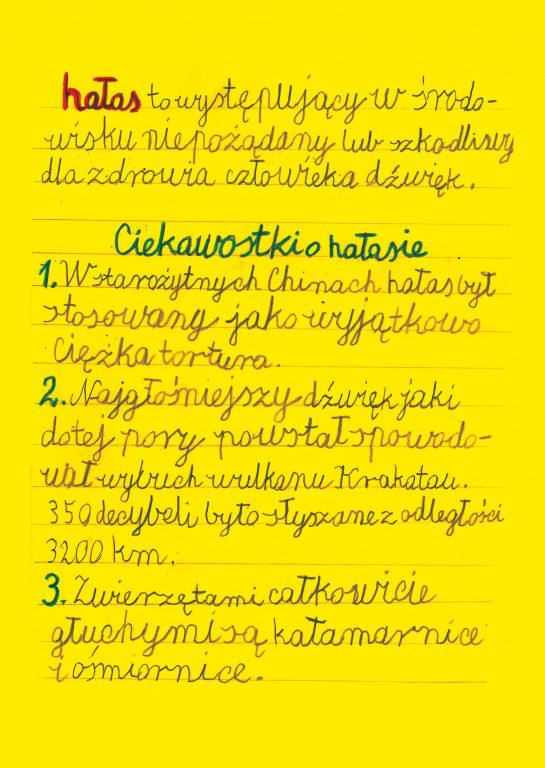 hałas to występujący w środo-
wisku niepożądany lub szkodliwy
dla zdrowia człowieka dźwięk.
Ciekawostki o hałasie
1. W starożytnych Chinach hałas był
stosowany jako wyjątkowo
ciężka tortura.
2. Najgłośniejszy dźwięk jaki
dotej pory powstał spowodo-
wał wybuch wulkanu Krakatau.
350 decybeli było słyszane z odległości
3200 km.
3. Zwierzętami całkowicie
głuchymi są kałamarnice
i ośmiornice.